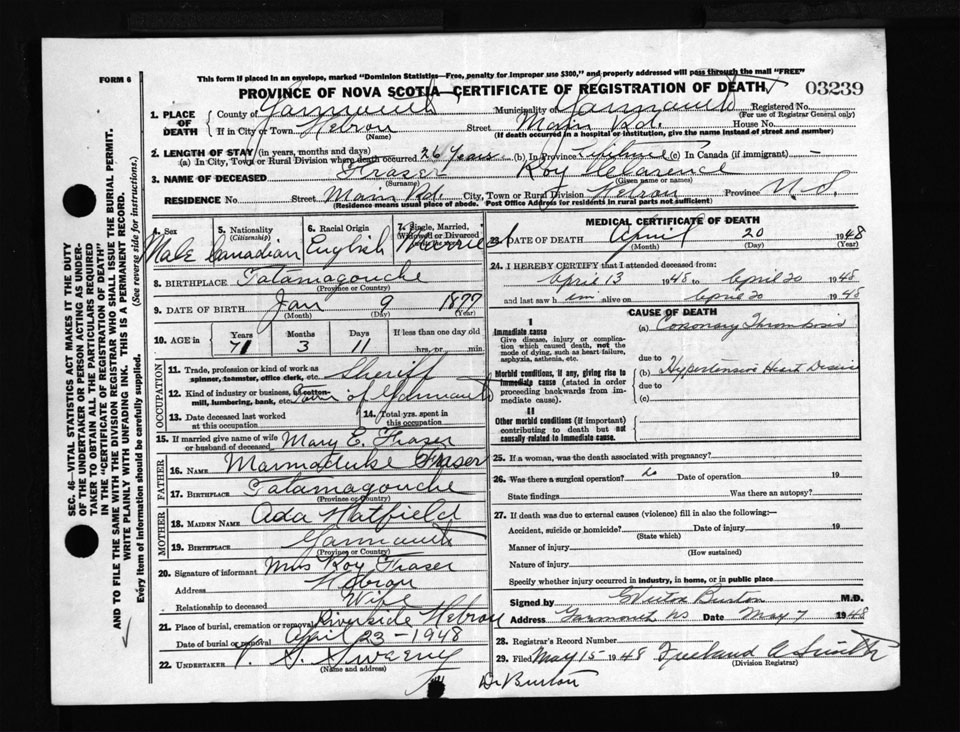 FORM 6
This form if placed in an envelope, marked "Dominion Statistics—Free, penalty for improper use $300," and properly addressed will pass through the mail "FREE"
PROVINCE OF NOVA SCOTIA—CERTIFICATE OF REGISTRATION OF DEATH
03239
1. PLACE OF DEATH
County of Yarmouth Municipality of Yarmouth Registered No.
(For use of Registrar General only)
If in City or Town Hebron Street Main Rd. House No.
(Name) (If death occurred in a hospital or institution, give the name instead of street and number)
2. LENGTH OF STAY (in years, months and days)
(a) In City, Town or Rural Division where death occurred 26 Years (b) In Province Lifetime (c) In Canada (if immigrant) —
3. NAME OF DECEASED Fraser Roy Clarence
(Surname) (Given name or names)
RESIDENCE No. Street Main Rd. City, Town or Rural Division Hebron Province N.S.
(Residence means usual place of abode. Post Office Address for residents in rural parts not sufficient)
4. Sex Male
5. Nationality (Citizenship) Canadian
6. Racial Origin English
7. Single, Married, Widowed or Divorced Married
8. BIRTHPLACE Tatamagouche
(Province or Country)
9. DATE OF BIRTH Jan 9 1877
(Month) (Day) (Year)
10. AGE in Years 71 Months 3 Days 11 If less than one day old hrs. or min.
OCCUPATION
11. Trade, profession or kind of work as spinner, teamster, office clerk, etc. Sheriff
12. Kind of industry or business, as cotton-mill, lumbering, bank, etc. of Yarmouth
13. Date deceased last worked at this occupation
14. Total yrs. spent in this occupation
15. If married give name of wife or husband of deceased Mary E. Fraser
FATHER
16. NAME Marmaduke Fraser
17. BIRTHPLACE Tatamagouche
(Province or Country)
MOTHER
18. MAIDEN NAME Ada Hatfield
19. BIRTHPLACE Yarmouth
(Province or Country)
20. Signature of informant Mrs Roy Fraser
Address Hebron
Relationship to deceased Wife
21. Place of burial, cremation or removal Riverside Hebron
Date of burial or removal April 23-1948
22. UNDERTAKER S. Sweeny
(Name and address)
MEDICAL CERTIFICATE OF DEATH
23. DATE OF DEATH April 20 1948
(Month) (Day) (Year)
24. I HEREBY CERTIFY that I attended deceased from:
April 13 1948 to April 20 1948
and last saw him alive on April 20 1948
CAUSE OF DEATH
I
Immediate cause
Give disease, injury or complication which caused death, not the mode of dying, such as heart failure, asphyxia, asthenia, etc.
(a) Coronary Thrombosis
due to
Morbid conditions, if any, giving rise to immediate cause (stated in order proceeding backwards from immediate cause).
(b) Hypertensive Heart Disease
due to
(c)
II
Other morbid conditions (if important) contributing to death but not causally related to immediate cause.
25. If a woman, was the death associated with pregnancy?
26. Was there a surgical operation? no Date of operation 19
State findings Was there an autopsy?
27. If death was due to external causes (violence) fill in also the following:—
Accident, suicide or homicide? Date of injury 19
(State which)
Manner of injury
(How sustained)
Nature of injury
Specify whether injury occurred in industry, in home, or in public place
Signed by Burton M.D.
Address Yarmouth NS Date May 7 1948
28. Registrar's Record Number
29. Filed May 15 1948 Freeland A Smith
(Division Registrar)
Dr Burton
SEC. 46—VITAL STATISTICS ACT MAKES IT THE DUTY
OF THE UNDERTAKER OR PERSON ACTING AS UNDER-
TAKER TO OBTAIN ALL THE PARTICULARS REQUIRED
IN THE "CERTIFICATE OF REGISTRATION OF DEATH"
AND TO FILE THE SAME WITH THE DIVISION REGISTRAR WHO SHALL ISSUE THE BURIAL PERMIT.
WRITE PLAINLY WITH UNFADING INK. THIS IS A PERMANENT RECORD.
Every item of information should be carefully supplied. (See reverse side for instructions.)